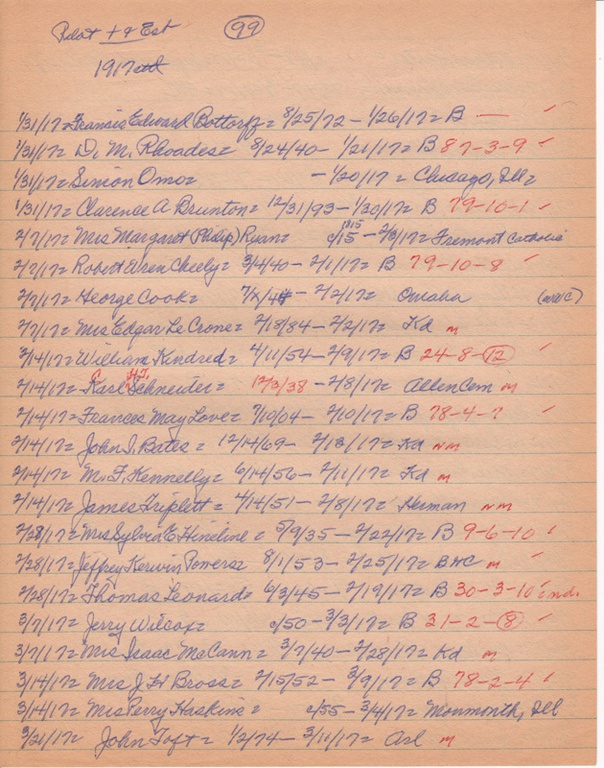 Pilot + & Est (99)
1917
1/31/17= Francis Edward Bottorff= 8/25/72 - 1/26/17= B —
1/31/17= D. M. Rhoades= 8/24/40 - 1/21/17= B 87-3-9
1/31/17= Simon Omo= - 1/20/17= Chicago, Ill=
1/31/17= Clarence A Brunton= 12/31/93 - 1/30/17= B 79-10-1
2/7/17= Mrs Margaret (Philip) Ryan= c/15 1815 - 2/3/17= Fremont Catholic
2/7/17= Robert Wren Cheely= 3/4/40 - 2/1/17= B 79-10-8
2/7/17= George Cook= - 2/2/17= Omaha
2/7/17= Mrs Edgar Le Crone= 2/18/84 - 2/2/17= Kd m
2/14/17= William Kindred= 4/11/54 - 2/9/17= B 24-8-(12)
2/14/17= Karl Schneider= 12/3/38 - 2/8/17= Allen Cem m
2/14/17= Frances May Love= 7/10/04 - 2/10/17= B 78-4-?
2/14/17= John I. Bates= 12/14/69 - 2/12/17= Kd nm
2/14/17= M. F. Kennelly= 6/14/56 - 2/11/17= Kd m
2/14/17= James Triplett= 4/14/51 - 2/8/17= Herman nm
2/28/17= Mrs Sylvia E Hineline= 5/9/35 - 2/22/17= B 9-6-10
2/28/17= Jeffrey Kerwin Powers= 8/1/53 - 2/25/17= BHC m
2/28/17= Thomas Leonard= 6/3/45 - 2/19/17= B 30-3-10 ind.
3/7/17= Jerry Wilcox= c/50 - 3/3/17= B 31-2-(8)
3/7/17= Mrs Isaac McCann= 3/7/40 - 2/28/17= Kd m
3/14/17= Mrs J H Bross= 2/15/52 - 3/9/17= B 78-2-4
3/14/17= Mrs Perry Haskins= c/55 - 3/4/17= Monmonth, Ill
3/21/17= John Toft= 1/2/74 - 3/11/17= Arl m